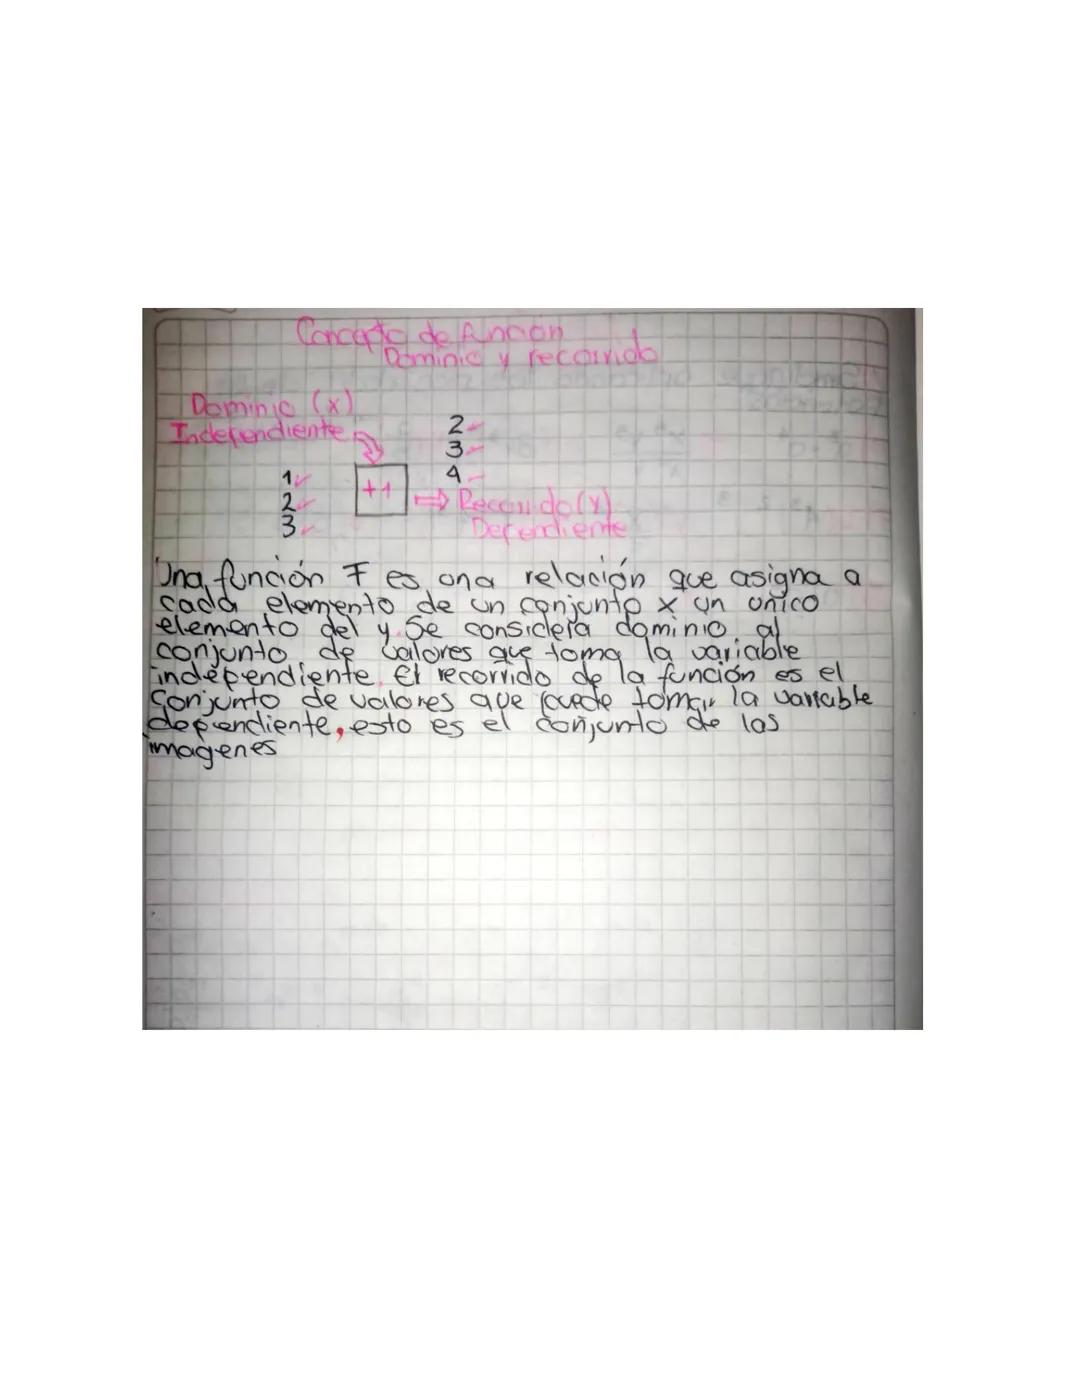 Concepto de función
Dominio y recorrido
Dominio (x)
Independiente
1
2
3
+1
2
3
4
Recorrido (y)
Dependiente
Una función F es una relación que asigna a
cada elemento de un conjunto x un único
elemento del y. Se considera dominio al
conjunto de valores que toma la variable
independiente. El recorrido de la función es el
conjunto de valores que puede tomar la variable
dependiente, esto es el conjunto de las
imagenes